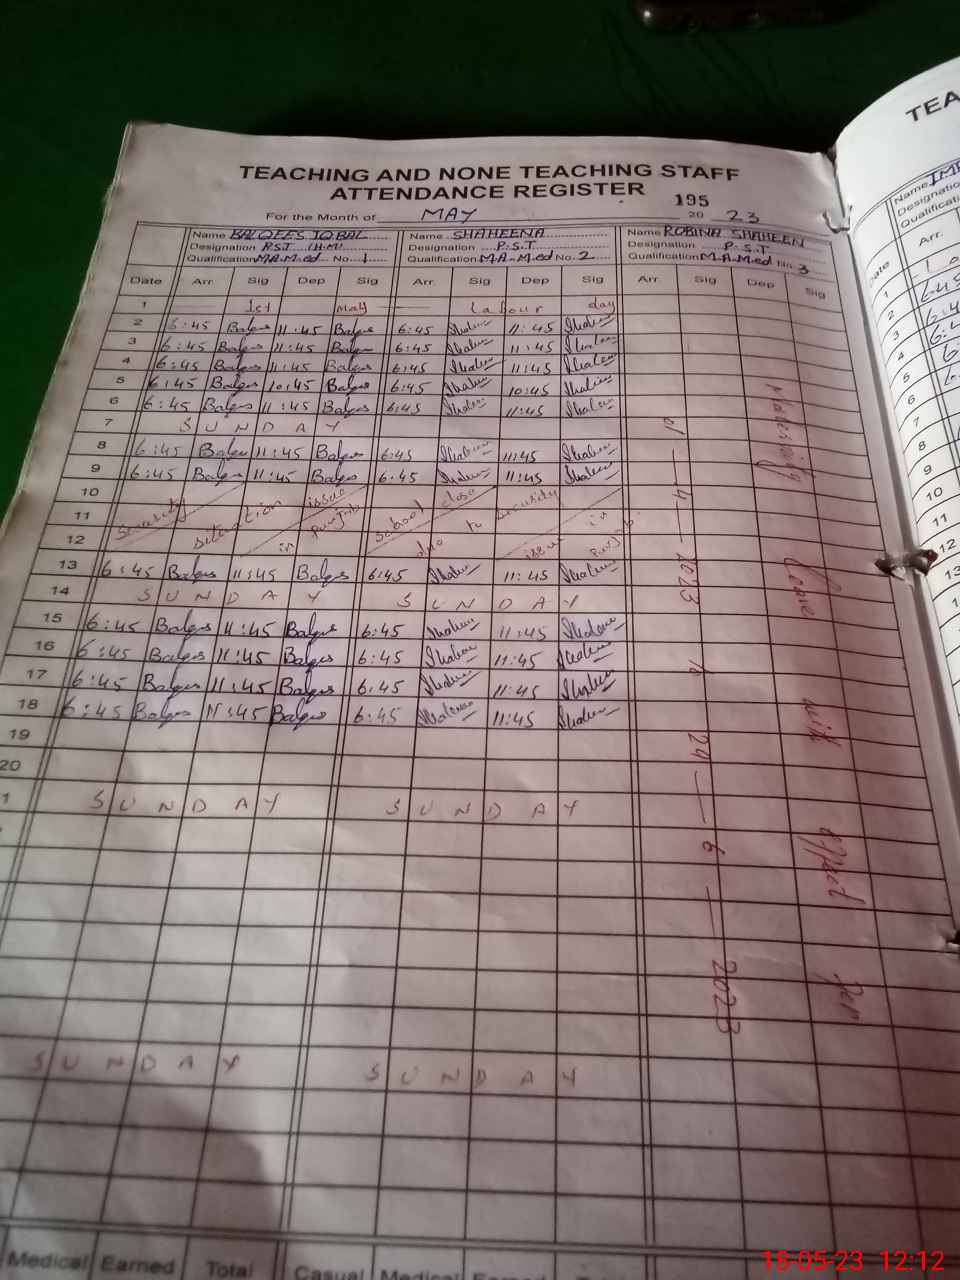 TEACHING AND NONE TEACHING STAFF
ATTENDANCE REGISTER
195
For the Month of MAY 20 23
Name BALQEES IQBAL Name SHAHEENA Name ROBINA SHAHEEN
Designation P.S.T (H.M) Designation P.S.T Designation P.S.T
Qualification M.A.M.ed No. 1 Qualification M.A-M.ed No. 2 Qualification M.A.M.ed No. 3
Date Arr. Sig Dep Sig Arr. Sig Dep Sig Arr. Sig Dep Sig
1 1st May Labour day
2 6:45 Balqes 11:45 Balqes 6:45 Shaheen 11:45 Shaheen
3 6:45 Balqes 11:45 Balqes 6:45 Shaheen 11:45 Shaheen
4 6:45 Balqes 11:45 Balqes 6:45 Shaheen 11:45 Shaheen
5 6:45 Balqes 10:45 Balqes 6:45 Shaheen 10:45 Shaheen
6 6:45 Balqes 11:45 Balqes 6:45 Shaheen 11:45 Shaheen
7 SUNDAY
8 6:45 Balqes 11:45 Balqes 6:45 Shaheen 11:45 Shaheen
9 6:45 Balqes 11:45 Balqes 6:45 Shaheen 11:45 Shaheen
10 issue School close
11 Security situation Punjab to security
12 in due issue in Punjab
13 6:45 Balqes 11:45 Balqes 6:45 Shaheen 11:45 Shaheen
14 SUNDAY SUNDAY
15 6:45 Balqes 11:45 Balqes 6:45 Shaheen 11:45 Shaheen
16 6:45 Balqes 11:45 Balqes 6:45 Shaheen 11:45 Shaheen
17 6:45 Balqes 11:45 Balqes 6:45 Shaheen 11:45 Shaheen
18 6:45 Balqes 11:45 Balqes 6:45 Shaheen 11:45 Shaheen
19
20
1 SUNDAY SUNDAY
SUNDAY SUNDAY
with effect
01 — 4 — 2023 to 24 — 6 — 2023
Medical Earned Total Casual Medical
TEA
Name
Designatio
Qualificati
Date Arr.
1
2
3
4
5
6
7
8
9
10
11
12
13
18-05-23 12:12